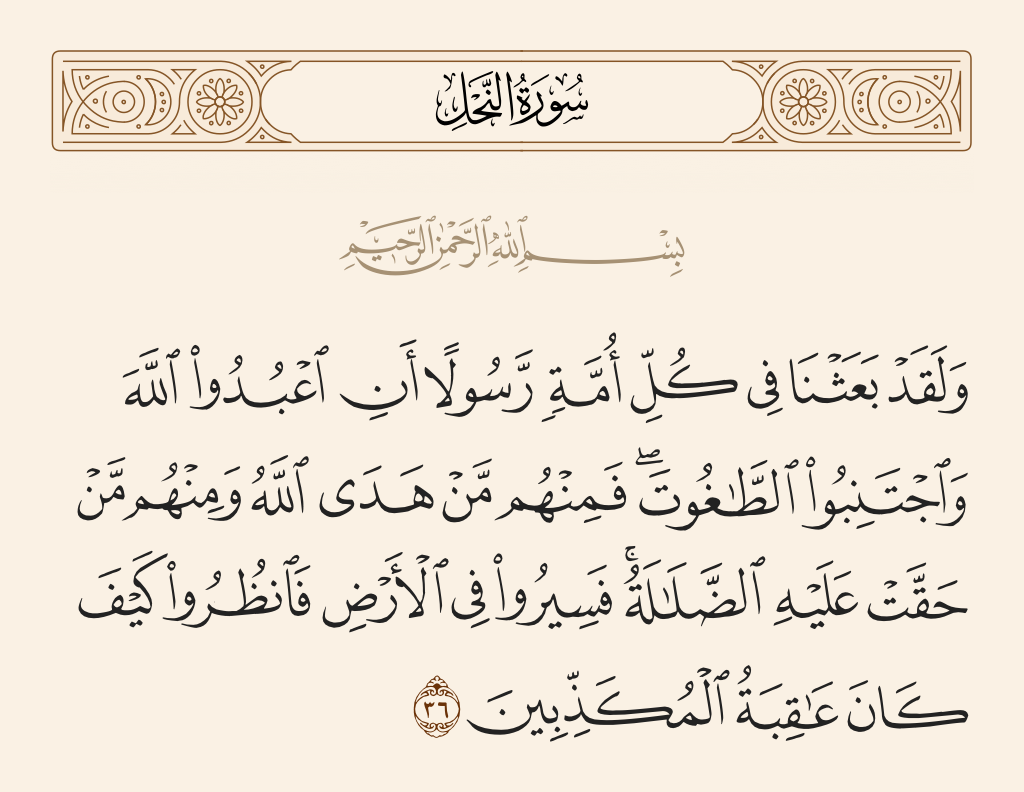 سُورَةُ النَّحْلِ
بِسْمِ ٱللَّهِ ٱلرَّحْمَٰنِ ٱلرَّحِيمِ
وَلَقَدْ بَعَثْنَا فِى كُلِّ أُمَّةٍ رَّسُولًا أَنِ ٱعْبُدُوا۟ ٱللَّهَ
وَٱجْتَنِبُوا۟ ٱلطَّٰغُوتَ ۖ فَمِنْهُم مَّنْ هَدَى ٱللَّهُ وَمِنْهُم مَّنْ
حَقَّتْ عَلَيْهِ ٱلضَّلَٰلَةُ ۚ فَسِيرُوا۟ فِى ٱلْأَرْضِ فَٱنظُرُوا۟ كَيْفَ
كَانَ عَٰقِبَةُ ٱلْمُكَذِّبِينَ ٣٦